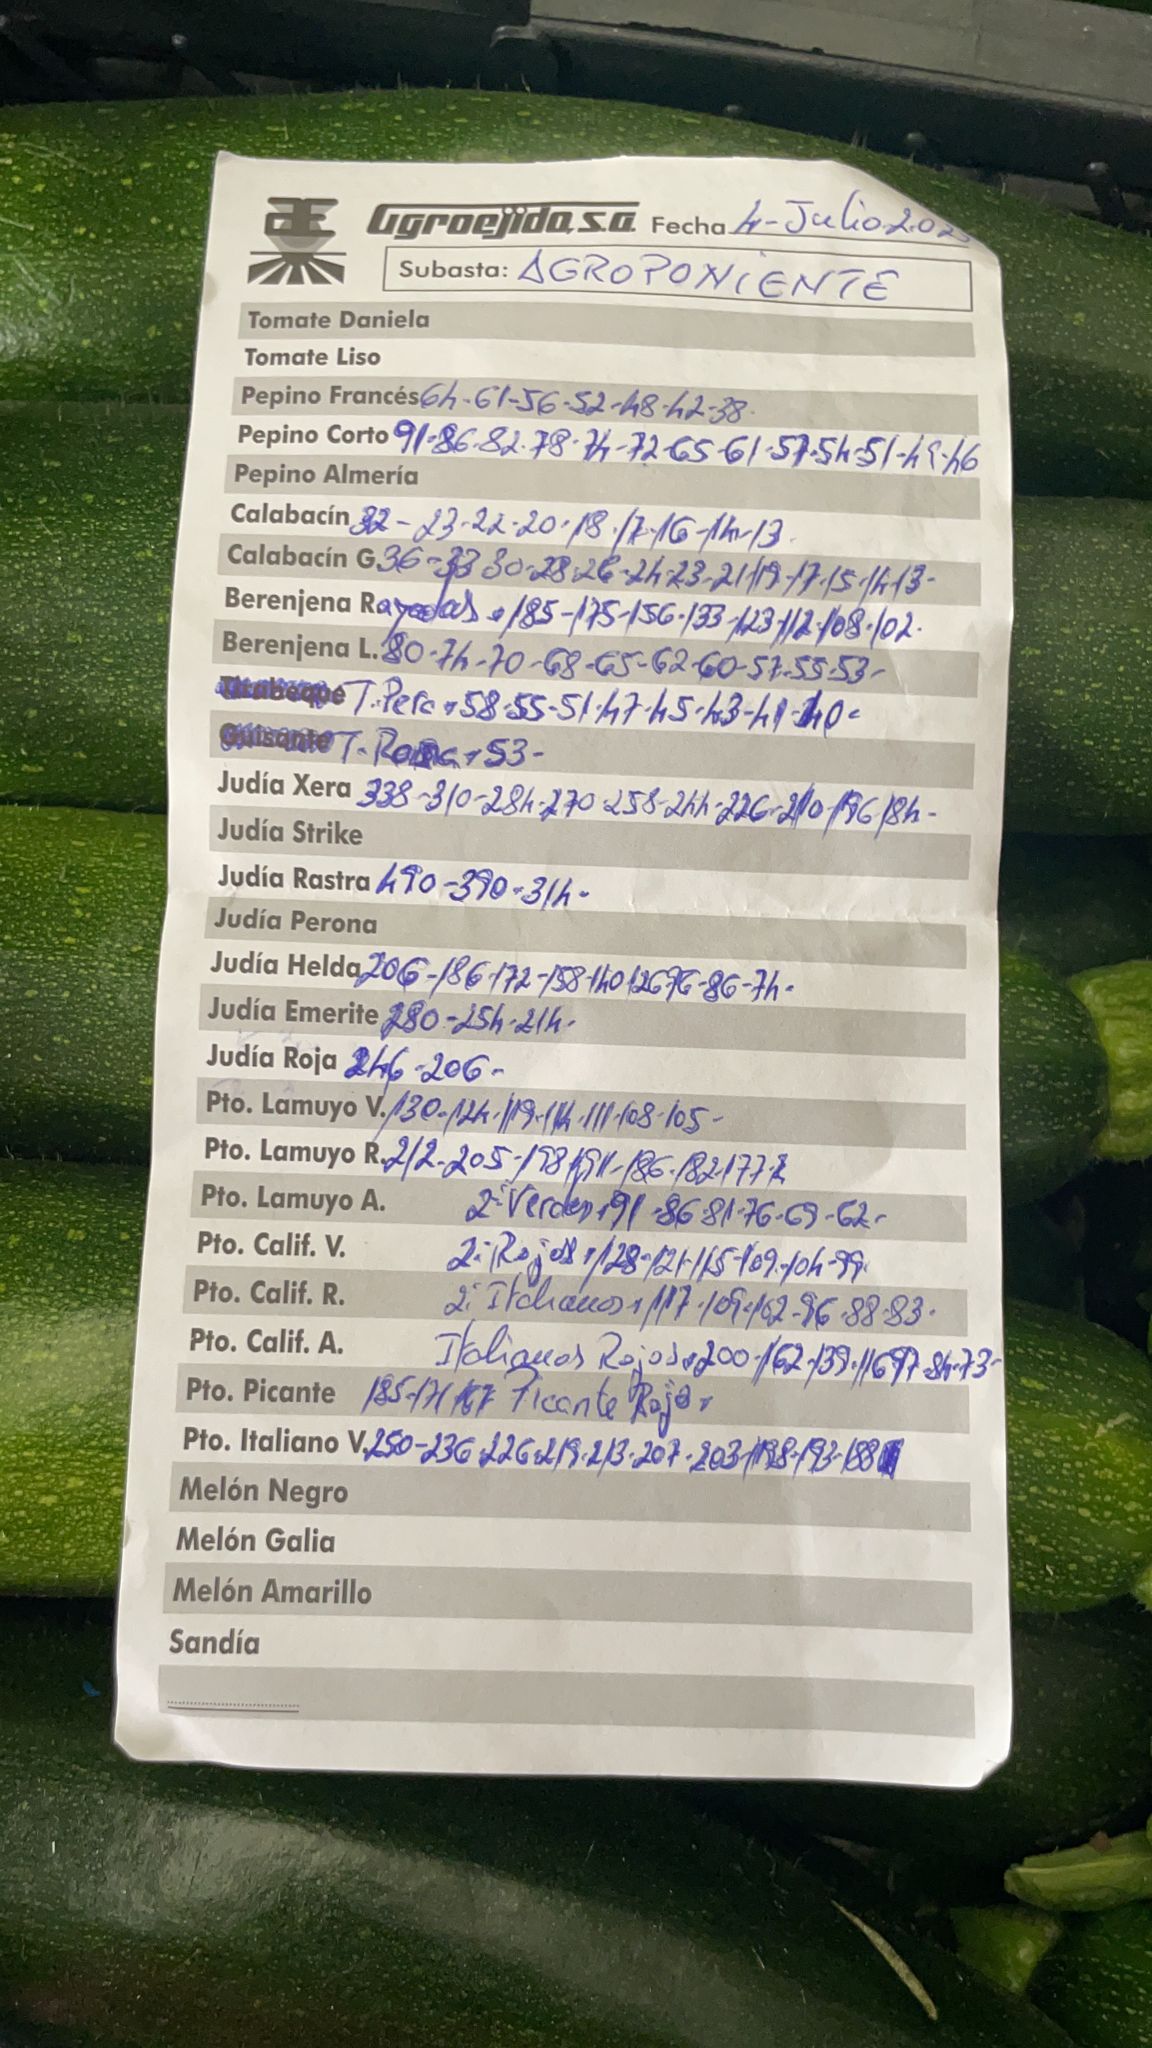 Agroejido, s.a. Fecha 4-Julio-202
Subasta: AGROPONIENTE
Tomate Daniela
Tomate Liso
Pepino Francés 64-61-56-52-48-42-38.
Pepino Corto 91-86-82-78-74-72-65-61-57-54-51-49-46
Pepino Almería
Calabacín 32-23-22-20-18-17-16-14-13.
Calabacín G. 36-33-30-28-26-24-23-21-19-17-15-14-13-
Berenjena Rayadas 185-175-156-133-123-112-108-102.
Berenjena L. 80-74-70-68-65-62-60-57-55-53-
Tirabeque T. Pera 58-55-51-47-45-43-41-40-
Guisante T. Rama 53-
Judía Xera 338-310-284-270-258-244-226-210-196-184-
Judía Strike
Judía Rastra 490-390-314-
Judía Perona
Judía Helda 206-186-172-158-140-126-96-86-74-
Judía Emerite 280-254-214-
Judía Roja 246-206-
Pto. Lamuyo V. 130-124-119-114-111-108-105-
Pto. Lamuyo R. 212-205-198-191-186-182-177
Pto. Lamuyo A. 2ª Verdes 91-86-81-76-69-62-
Pto. Calif. V. 2ª Rojos 128-121-115-109-104-99.
Pto. Calif. R. 2ª Italianos 117-109-102-96-88-83.
Pto. Calif. A. Italianos Rojos 200-162-139-116-97-84-73-
Pto. Picante 185-171-167 Picante Rojo
Pto. Italiano V. 250-236-226-219-213-207-203-198-193-188
Melón Negro
Melón Galia
Melón Amarillo
Sandía